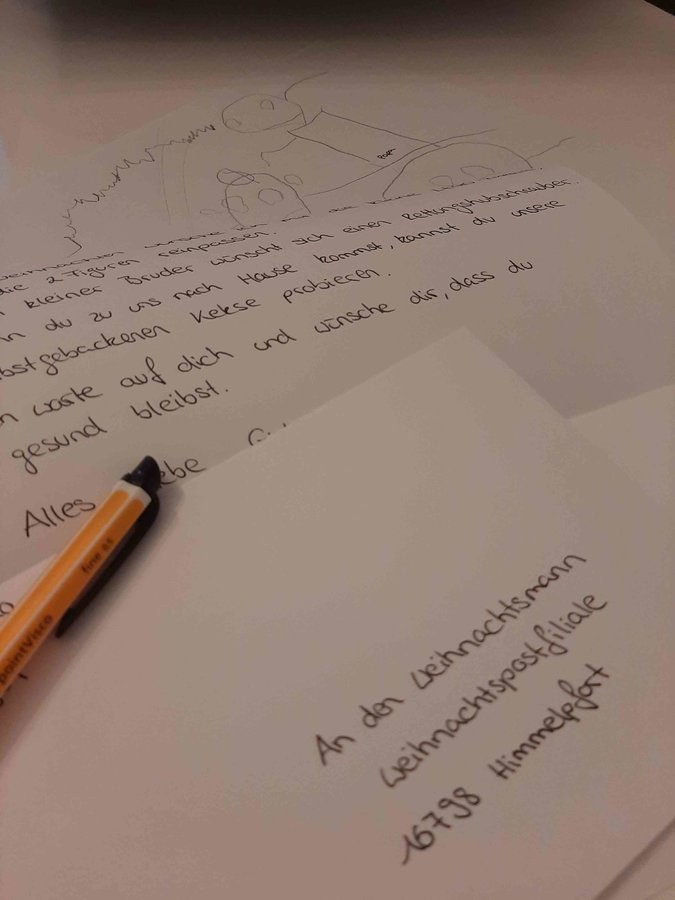 die 2 Figuren reinpassen.
kleiner Bruder wünscht sich einen Rettungshubschrauber.
du zu uns nach Hause kommst, kannst du unsere
bstgebackenen Kekse probieren.
warte auf dich und wünsche dir, dass du
gesund bleibst.
Alles ebe
pointVisco
fine 0.5
An den Weihnachtsmann
Weihnachtspostfiliale
16798 Himmelpfort